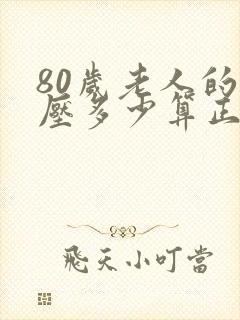 80歲老人的
壓多少算正
飛天小叮當